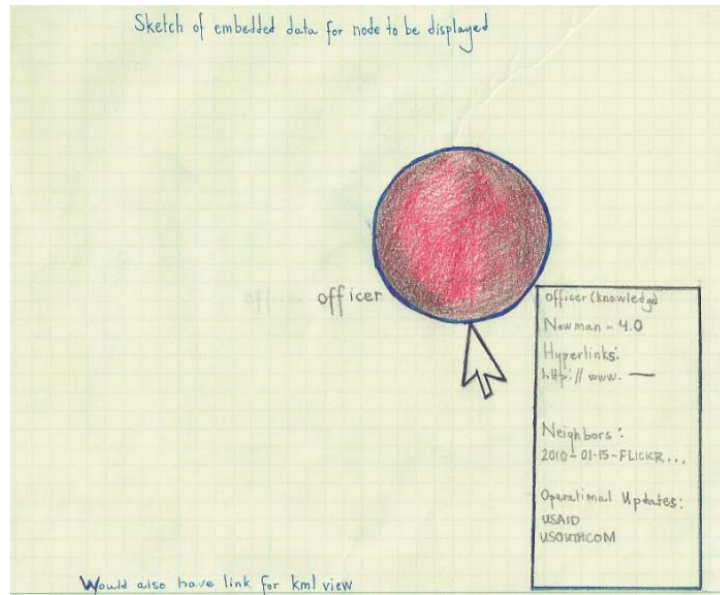 Sketch of embedded data for node to be displayed
officer
officer (knowledge
Newman - 4.0
Hyperlinks:
http://www. —
Neighbors:
2010-01-15-FLICKR...
Operational Updates:
USAID
USOUTHCOM
Would also have link for kml view